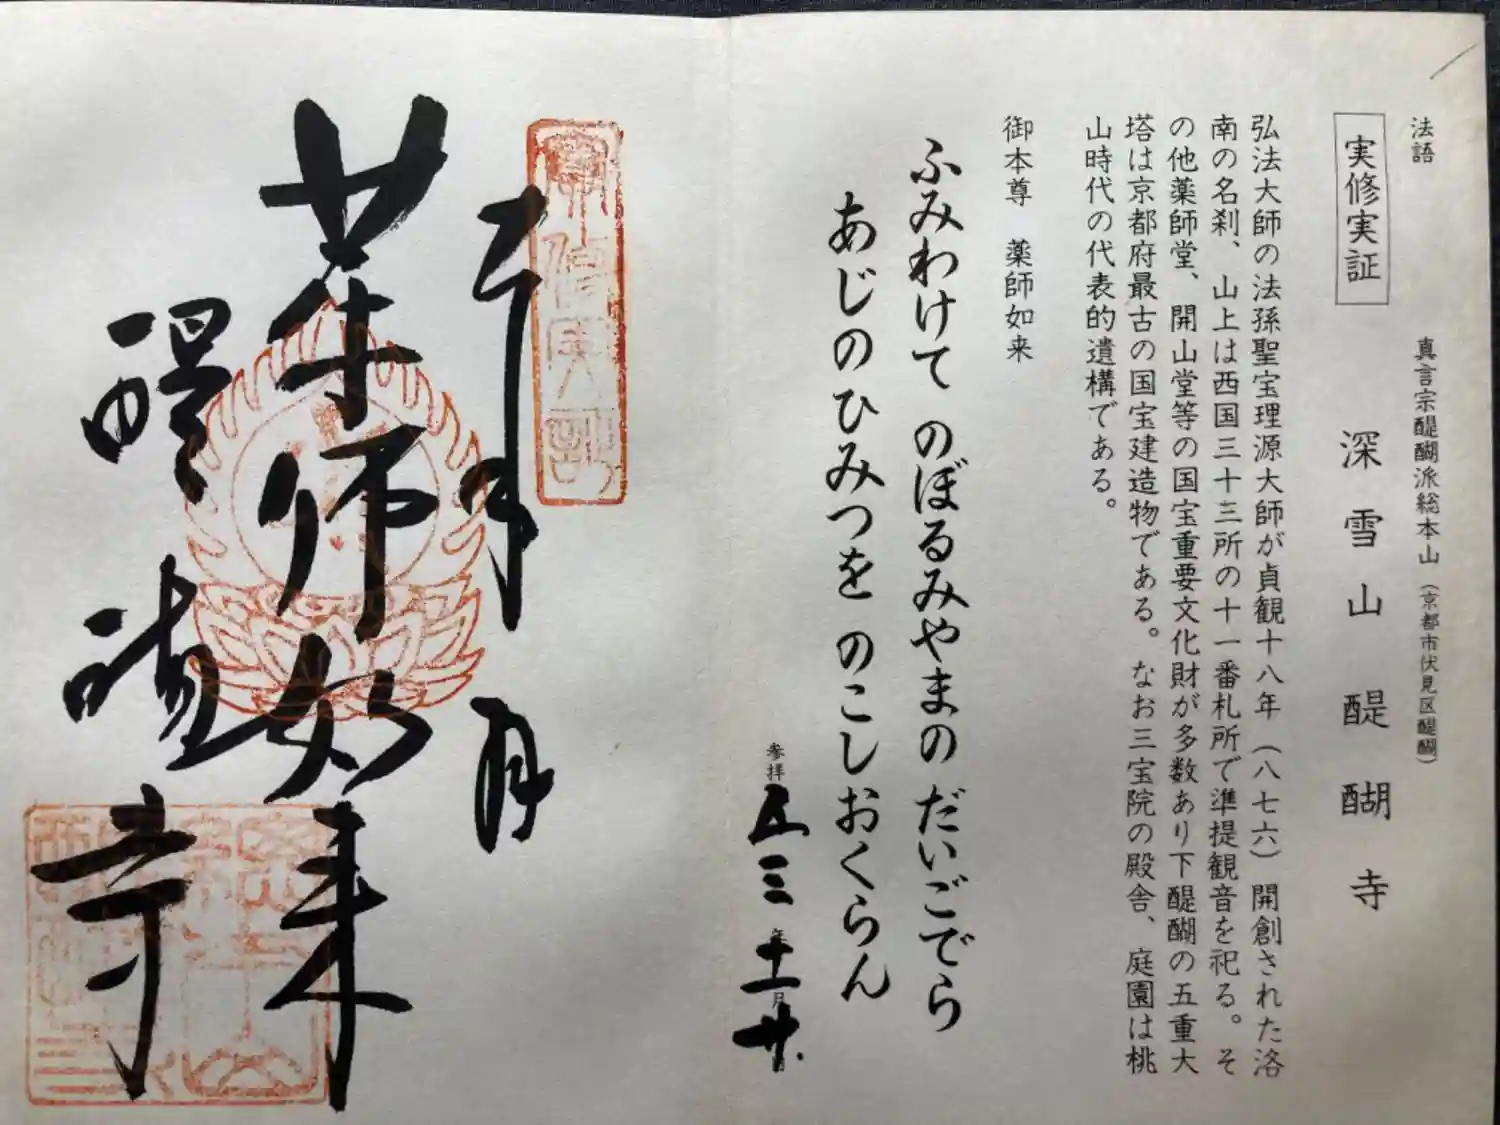 法語
真言宗醍醐派総本山(京都市伏見区醍醐)
実修実証
深雪山醍醐寺
弘法大師の法孫聖宝理源大師が貞観十八年(八七六)開創された洛
南の名刹、山上は西国三十三所の十一番札所で準提観音を祀る。そ
の他薬師堂、開山堂等の国宝重要文化財が多数あり下醍醐の五重大
塔は京都府最古の国宝建造物である。なお三宝院の殿舎、庭園は桃
山時代の代表的遺構である。
御本尊 薬師如来
ふみわけて のぼるみやまの だいごでら
あじのひみつを のこしおくらん
参拝 五三年十一月廿日
実修実証
薬師如来
醍醐寺